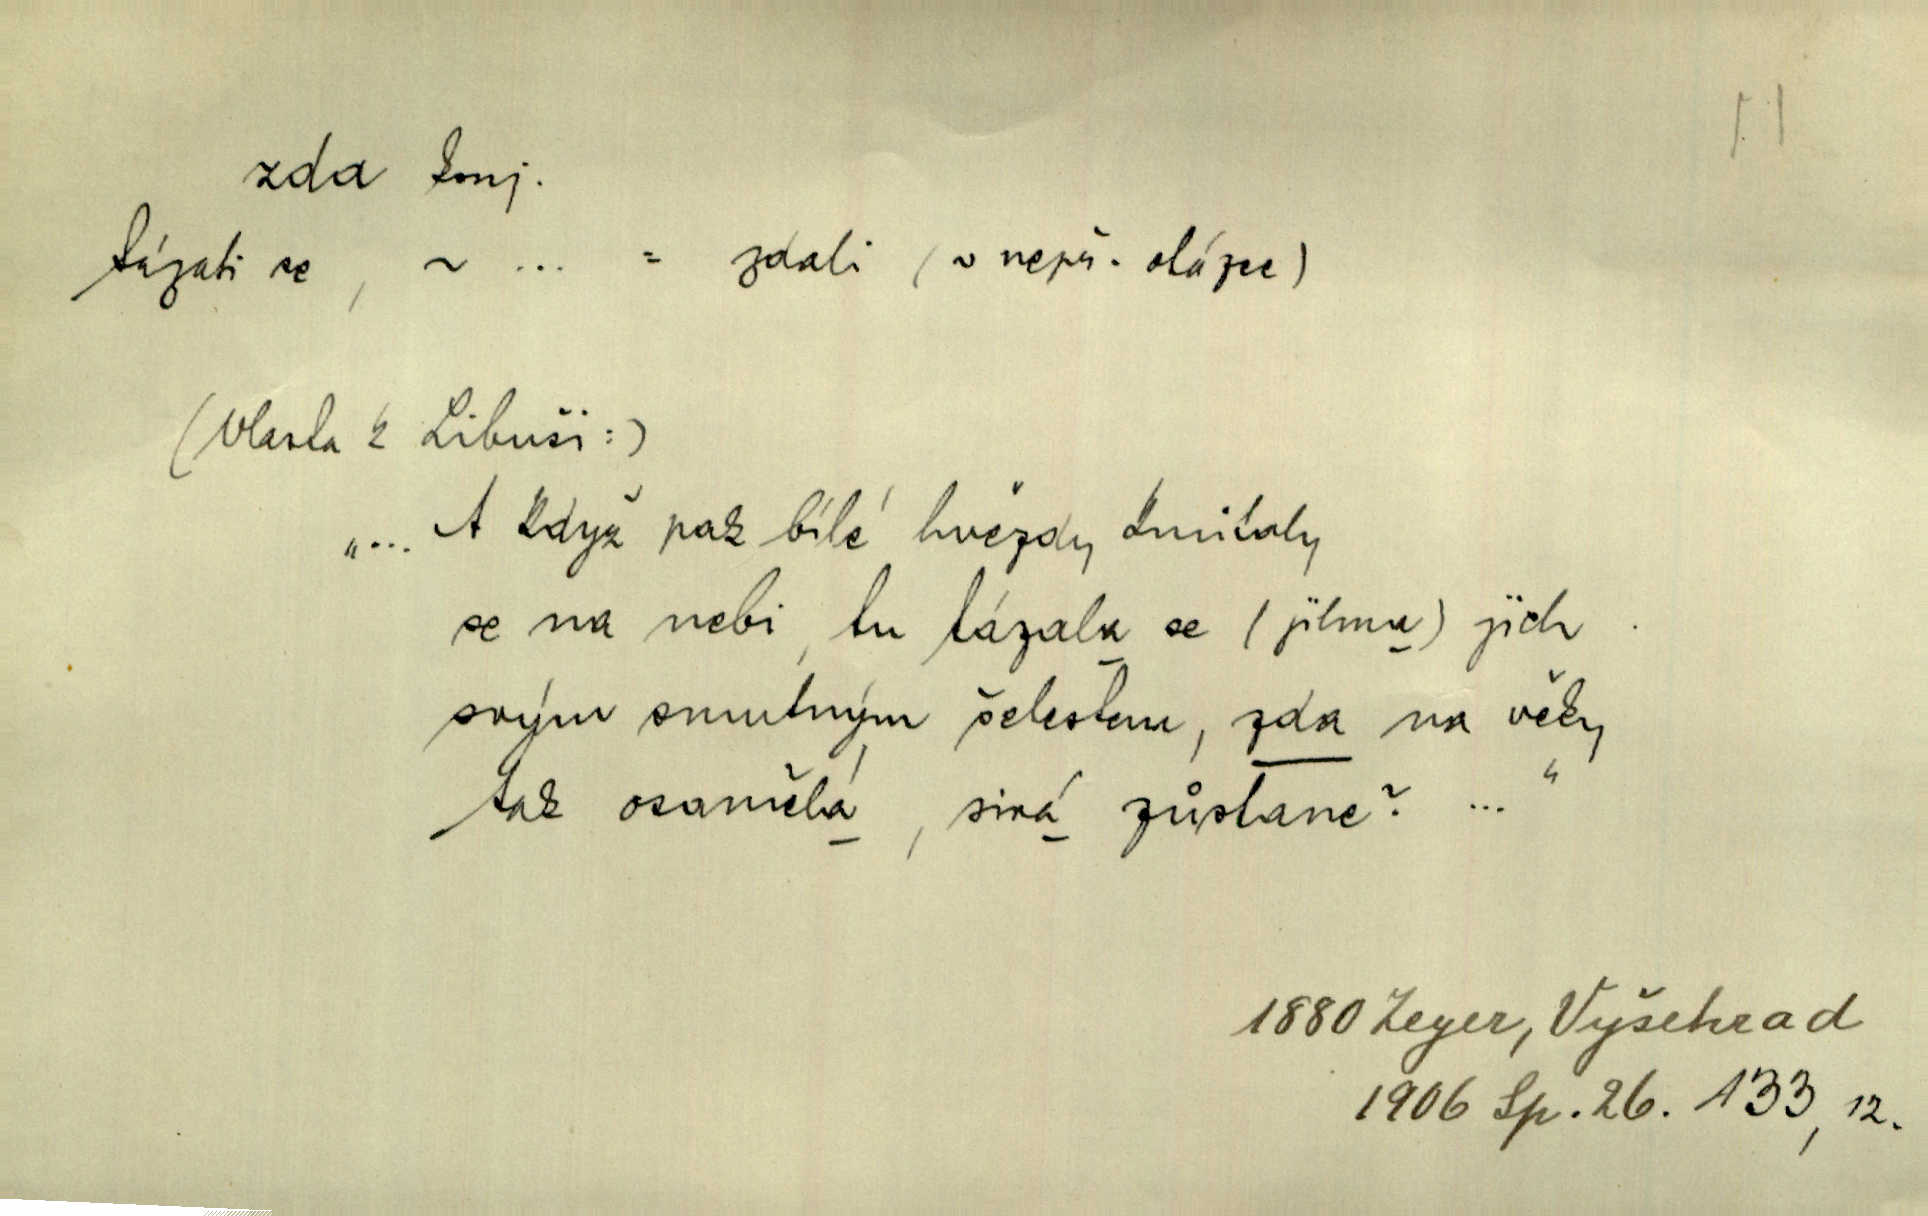 zda konj.
tázati se, ~ ... = zdali (v nepř. otázce)
(Vlasta k Libuši:)
„... A když pak bílé hvězdy kmitaly
se na nebi, tu tázala se (jilma) jich
svým smutným šelestem, zda na věky
tak osamělá, sirá zůstane? ..."
1880 Zeyer, Vyšehrad
1906 Sp. 26. 133, 12.